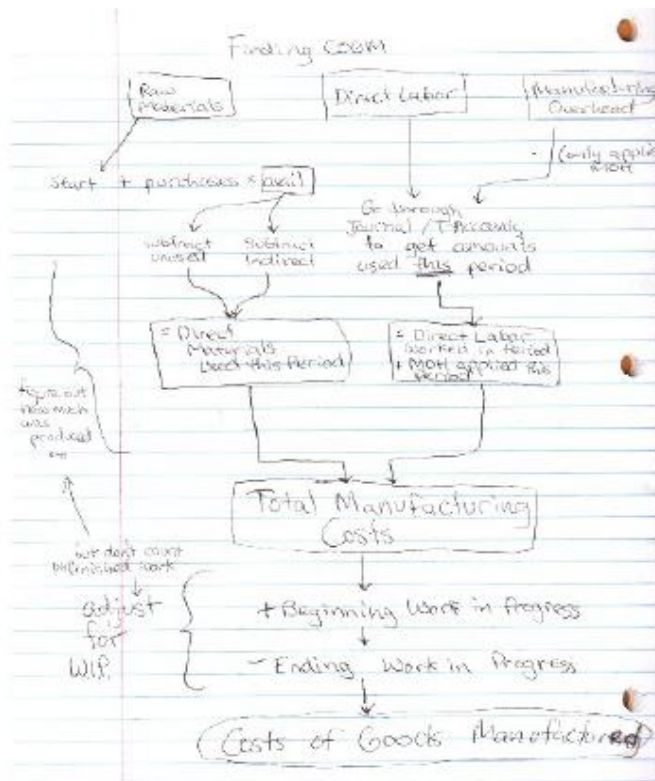 Finding COGM
Raw
Materials
Direct Labor
Manufacturing
Overhead
- (only applied
MOH
Start + purchases = avail
subtract
unused
Subtract
Indirect
Go through
Journal / T Accounts
to get amounts
used this period
= Direct
Materials
Used this Period
= Direct Labor
worked in period
+ MOH applied this
period
figure out
how much
was
produced
Total Manufacturing
Costs
but don't count
unfinished work
adjust
for
WIP.
+ Beginning Work in Progress
- Ending Work in Progress
Costs of Goods Manufactured